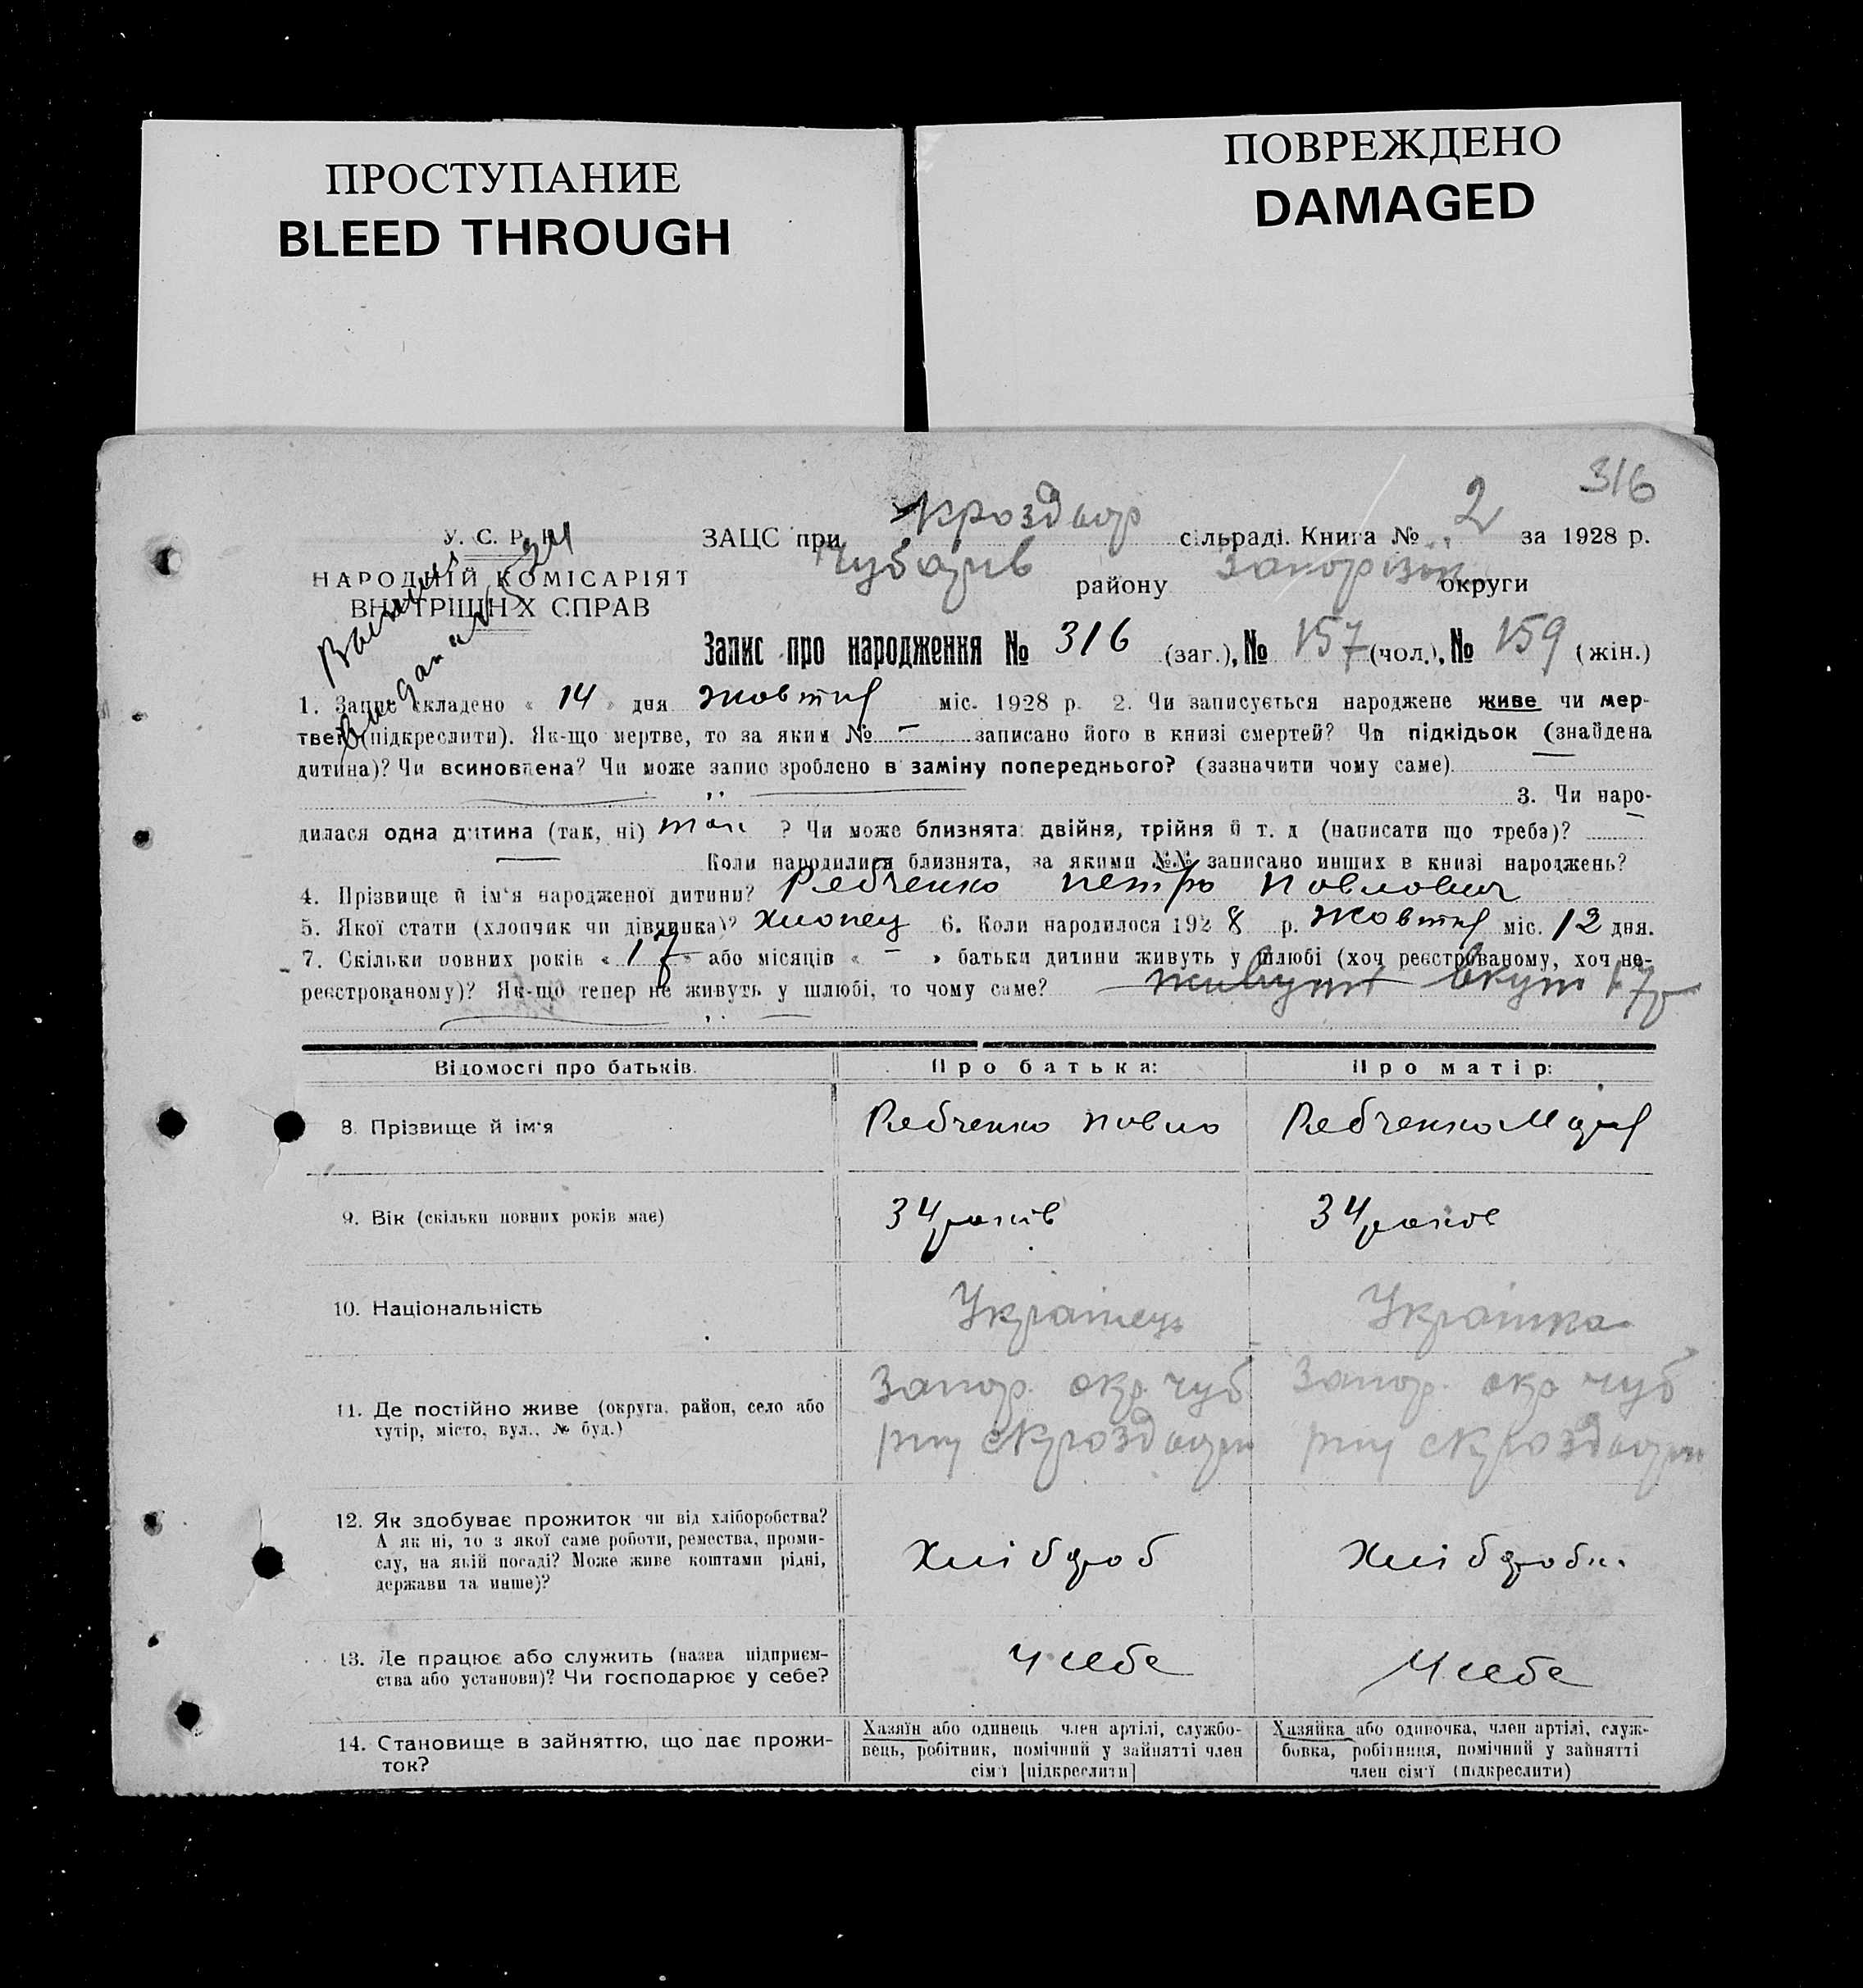 ПРОСТУПАНИЕ
BLEED THROUGH
ПОВРЕЖДЕНО
DAMAGED
316
У. С. Р. Р.
НАРОДНІЙ КОМІСАРІЯТ
ВНУТРІШНІХ СПРАВ
ЗАЦС при Кроздвор сільраді. Книга № 2 за 1928 р.
Чубарів району Запорізьк округи
Запис про народження № 316 (заг.), № 157 (чол.), № 159 (жін.)
1. Запис складено « 14 » дня жовтня міс. 1928 р. 2. Чи записується народжене живе чи мер-
тве (підкреслити). Як-що мертве, то за яким № — записано його в книзі смертей? Чи підкідьок (знайдена
дитина)? Чи всиновлена? Чи може запис зроблено в заміну попереднього? (зазначити чому саме)
3. Чи наро-
дилася одна дитина (так, ні) так ? Чи може близнята: двійня, трійня й т. д (написати що треба)?
Коли народилися близнята, за якими №№ записано инших в книзі народжень?
4. Прізвище й ім'я народженої дитини? Рябченко Петро Павлович
5. Якої стати (хлопчик чи дівчинка)? Хлопец 6. Коли народилося 1928 р. Жовтня міс. 12 дня.
7. Скільки повних років « 17 » або місяців « — » батьки дитини живуть у шлюбі (хоч реєстрованому, хоч не-
реєстрованому)? Як-що тепер не живуть у шлюбі, то чому саме? живут вкупі 17 р
Відомості про батьків.
Про батька:
Про матір:
8. Прізвище й ім'я
Рябченко Павло
Рябченко Марія
9. Вік (скільки повних років має)
34 років
34 років
10. Національність
Українець
Українка
11. Де постійно живе (округа, район, село або
хутір, місто, вул., № буд.)
Запор. окр. Чуб
рну с Кроздвори
Запор. окр. Чуб
рну с Кроздвори
12. Як здобуває прожиток чи від хліборобства?
А як ні, то з якої саме роботи, ремества, проми-
слу, на якій посаді? Може живе коштами рідні,
держави та инше)?
Хлібороб
Хлібороб.
13. Де працює або служить (назва підприєм-
ства або установи)? Чи господарює у себе?
У себе
У себе
14. Становище в зайняттю, що дає прожи-
ток?
Хазяїн або одинець член артілі, службо-
вець, робітник, помічний у зайнятті член
сім'ї [підкреслити]
Хазяйка або одиночка, член артілі, служ-
бовка, робітниця, помічний у зайнятті
член сім'ї (підкреслити)